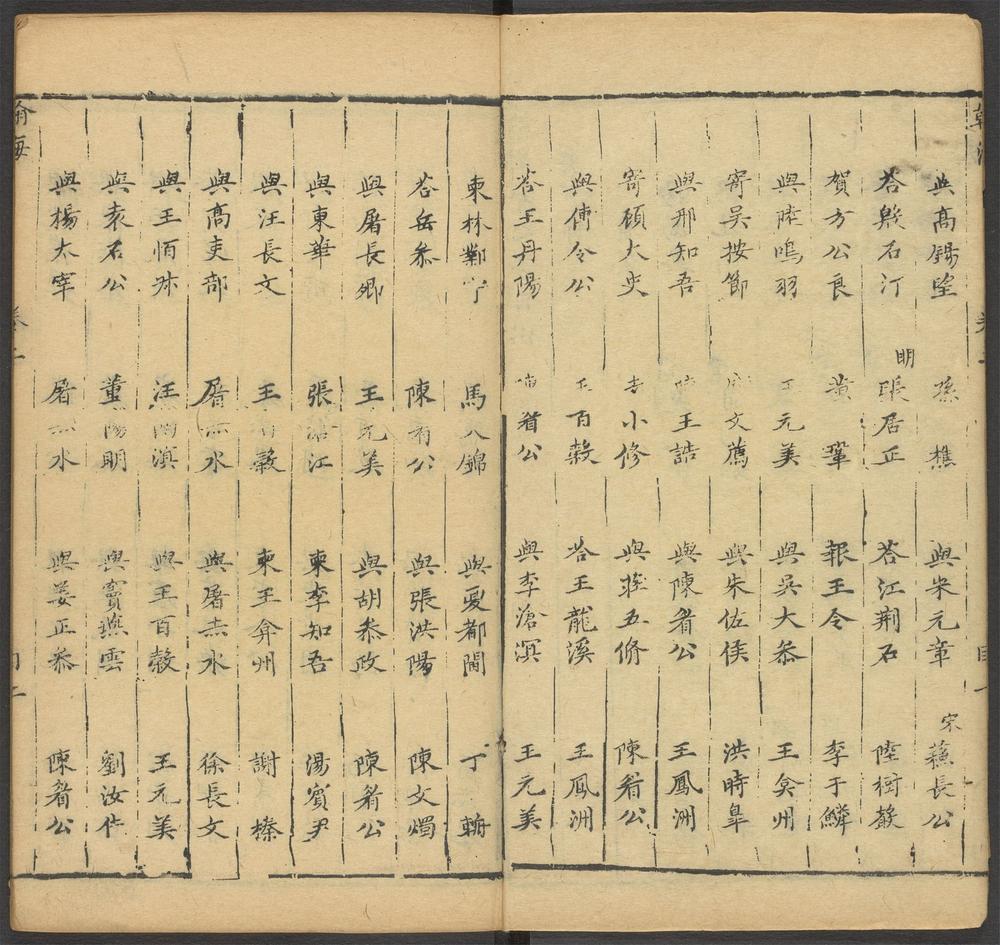 與高錫望 孫樵 與米元章 宋蘇長公
答殷石汀 明張居正 答江荆石 陸樹聲
賀方公良 黃鞏 報王令 李于鱗
與陸鳴羽 王元美 與吳大叅 王弇州
寄吳按節 文薦 與朱佐侯 洪時臯
與邢知吾 王誥 與陳眷公 王鳳洲
寄顧大史 李小修 與莊五俢 陳眷公
與傅令公 王百穀 答王龍溪 王鳳洲
答王丹陽 陳眷公 與李滄溟 王元美
柬林鄴 馬 錦 與夏都閫 丁
答岳叅 陳眷公 與張洪陽 陳文燭
與屠長卿 王元美 與胡叅政 陳眷公
與東華 張 江 柬李知吾 湯賓尹
與汪長文 王百穀 柬王弇州 謝榛
與高吏部 屠赤水 與屠赤水 徐長文
與王恒叔 汪南溟 與王百穀 王元美
與袁石公 董 陽明 與竇燕雲 劉汝佐
與楊太宰 屠赤水 與姜正叅 陳眷公
翰海 卷二